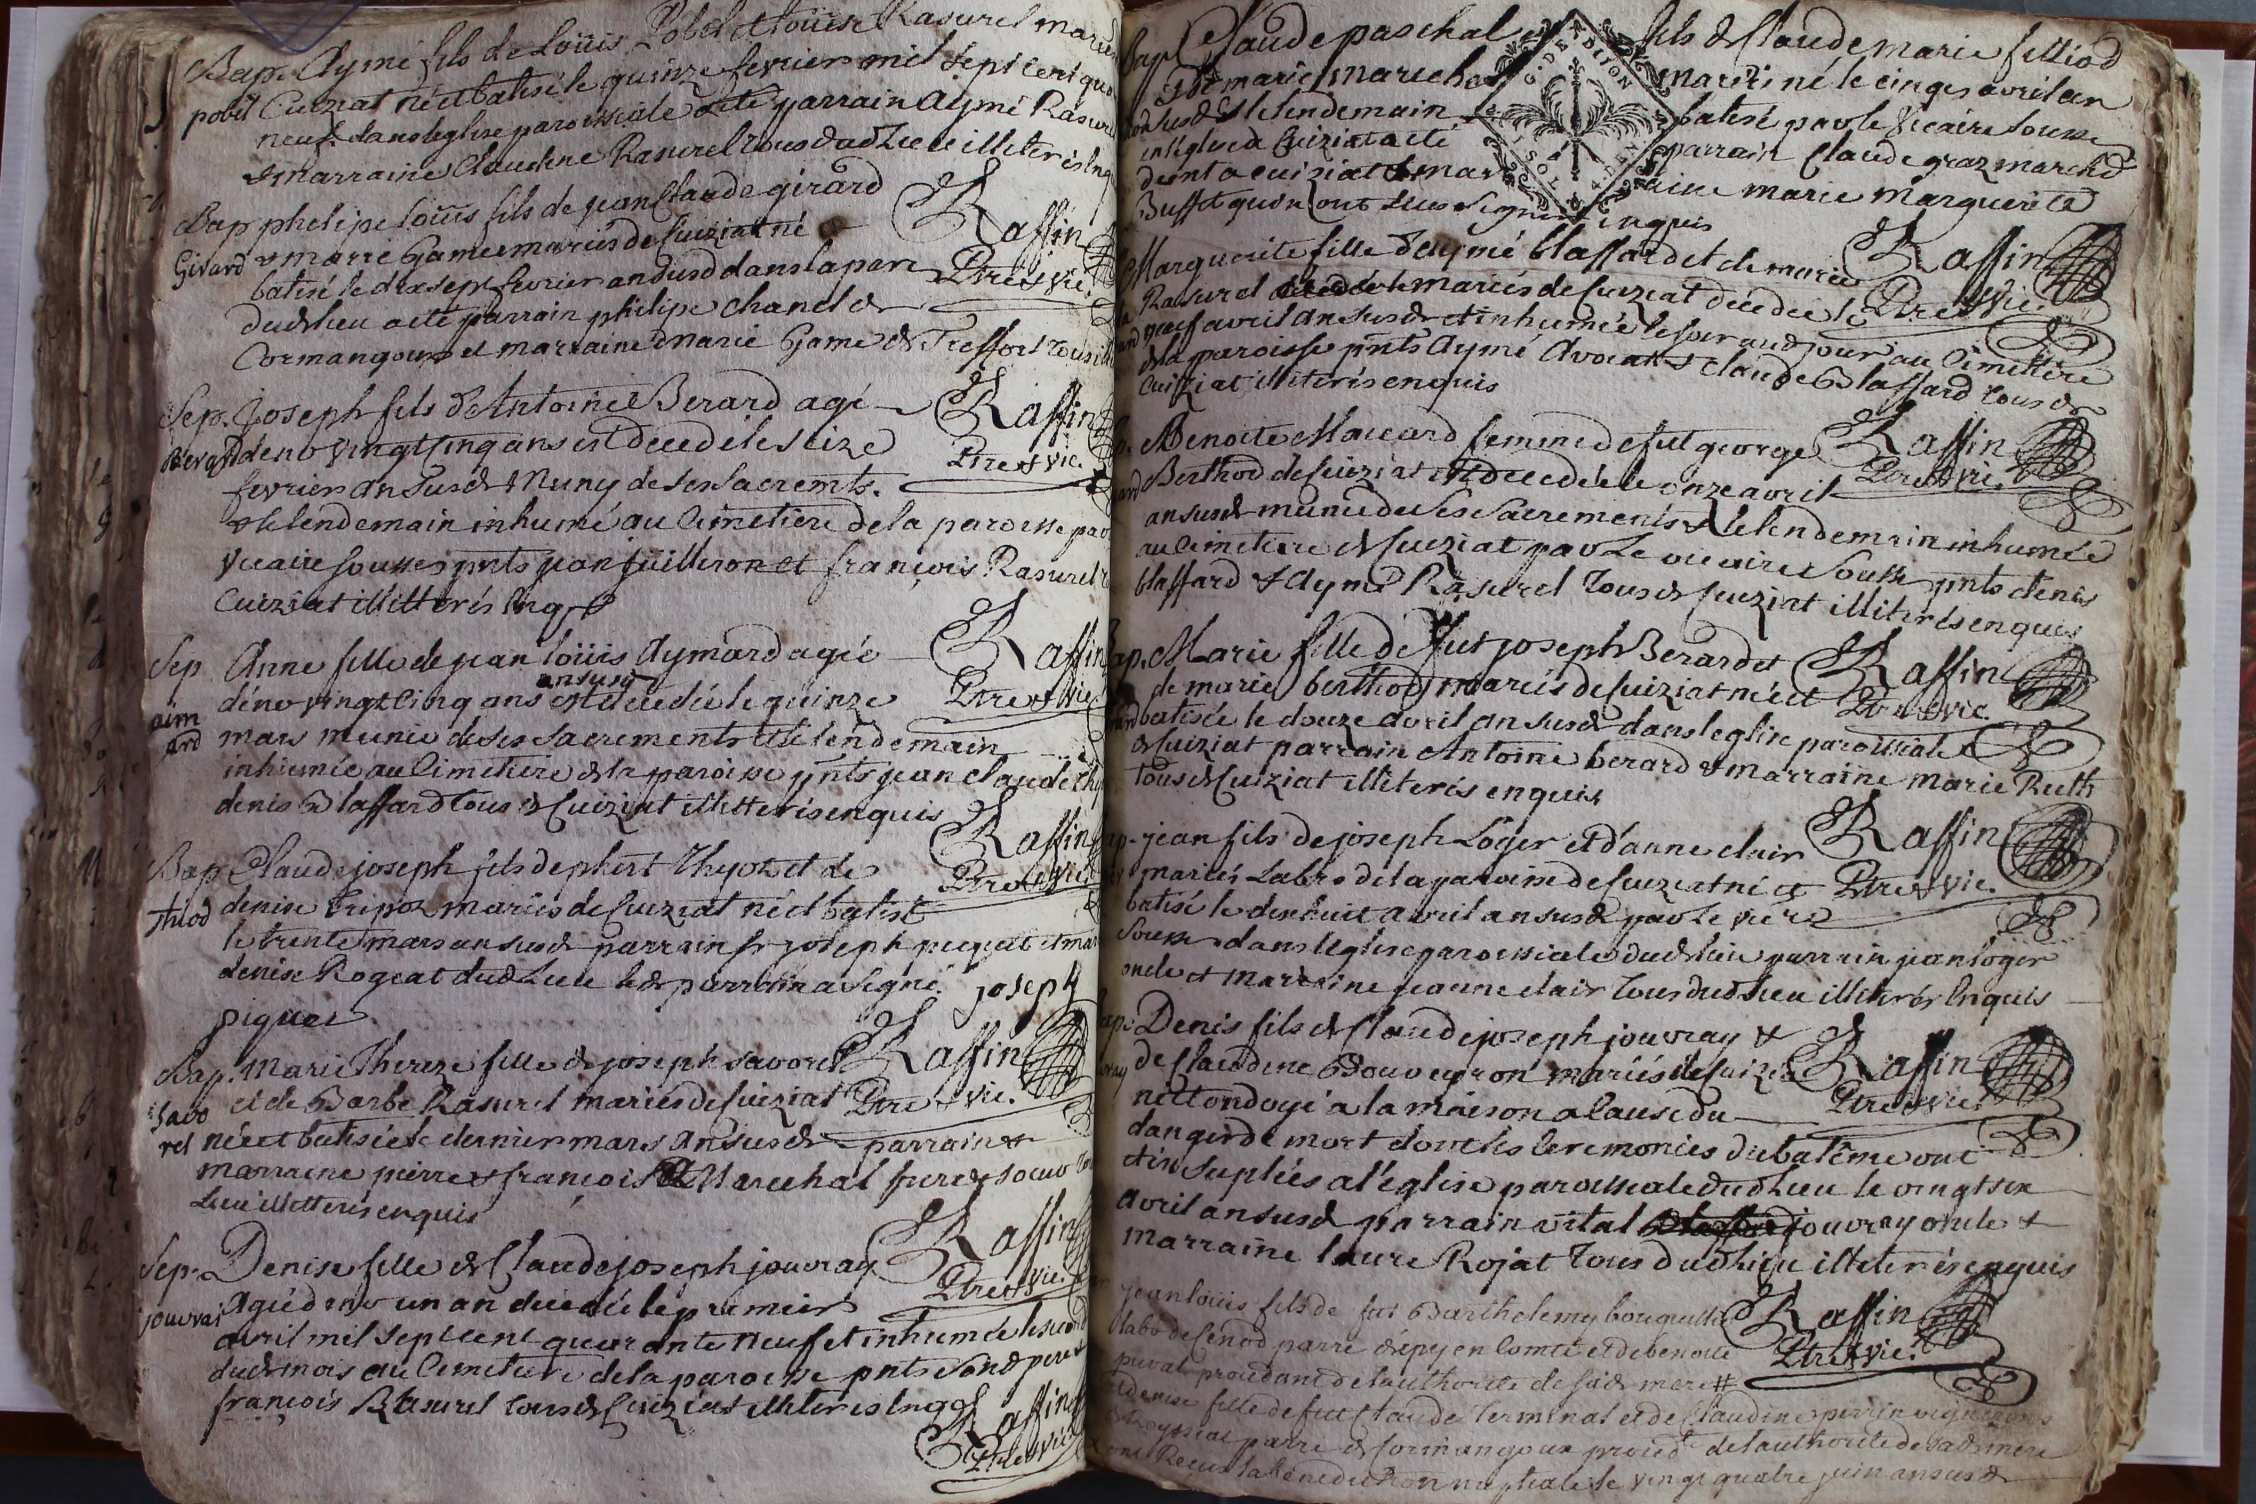 Bap. Aymé fils de Loüis Pobel et Loüise Rasurel mariés
pobel Cuiziat né et batisé le quinze fevrier mil sept cent qua
neuf dans leglise paroissiale a eté parrain Aymé Rasurel
& marraine Claudine Rasurel tous dud Lieu illiterés Enq
Bap phelipe loüis fils de jean Claude girard
Girard & marie Game mariés de Cuiziat né &
batisé le dix sept fevrier an susd dans la par
dud lieu a eté parrain philipe chanel de
Cormangoux et marraine marie Game de Treffort tous ill
Raffin
Ptre & vic.
Sep. Joseph fils d'Antoine Berard agé
Berard denv vingt cinq ans est decedé le seize
fevrier an susd & Muny de ses sacremts.
& le lendemain inhumé au Cimetiere de la paroisse par
vicaire soussé pnts jean juilleron et françois Rasurel
Cuiziat illitterés Enq
Raffin
Ptre & vic.
Sep Anne fille de jean loüis Aymard agée
an susd
aim denv vingt Cinq ans est decedée le quinze
ard mars munie de ses sacrements & le lendemain
inhumée au Cimetiere de la paroisse pnts jean claude
denis Blaffard tous de Cuiziat illitteris enquis
Raffin
Ptre & vic
Bap Claude joseph fils de phert Thyot et de
Thiod denise Tripoz mariés de Cuiziat né et batisé
le trente mars an susd parrain joseph piquet et mar
denise Rogeat dud Lieu led parrain a signé. joseph
piquet
Raffin
Ptre & vic
Bap. Marie Thereze fille de joseph savorel
Savo et de Barbe Rasurel mariés de Cuiziat
rel née et batisée le dernier mars an susd parrain &
marraine pierre & françoise Marechal frere & soeur
Lieu illitteris enquis
Raffin
Ptre & vic.
Sep. Denise fille de Claude joseph jouvray
jouvrai agée denv un an decedée le premier
avril mil sept cent quarante neuf et inhumée le second
dud mois au Cimetiere de la paroisse pnts sond pere &
françois Rasurel tous de Cuiziat illiteris Enq
Raffin
Ptre & vic.
Raffin
Ptre & vic
Bap Claude paschal fils de Claude marie filliod
& marie marechal mariés né le cinq avril an
susd & le lendemain batisé par le vicaire sousse
en l'eglise de Cuiziat a eté parrain Claude graz marchd
deint a cuiziat & marraine marie Marguerite
Buffet qui n'ont sceu signer enquis
G. D. E. DIION
SOL 4. DEN
Raffin
Ptre & vic.
Marguerite fille d'aymé blaffard et de marie
Rasurel mariés de Cuiziat decedée le
neuf avril an susd et inhumée le surand jour au Cimettire
de la paroisse pnts Aymé Avocat & claude Blaffard tous de
Cuiziat illiterés enquis
Raffin
Ptre & vic.
Benoite Maccard femme de fut george
Berthod de Cuiziat est decedée le onze avril
an susd munie de ses sacrements & le lendemain inhumée
au Cimetiere de Cuiziat par le vicaire Sousse pnts denis
blaffard & Aymé Rasurel tous de Cuiziat illiterés enquis
Raffin
Ptre & vic.
Bap. Marie fille de fut joseph Berard et
de marie berthod mariés de Cuiziat née et
batisée le douze avril an susd dans leglise paroissiale
de Cuiziat parrain Antoine berard & marraine Marie Ruth
tous de Cuiziat illiterés enquis
Raffin
Ptre & vic.
jean fils de joseph Löger et d'anne clair
mariés Labrs de la paroisse de Cuiziat né &
batisé le dixhuit avril an susd par le vicre
Sousse dans l'eglise paroissiale dud lieu parrain jean löger
oncle et marraine jeanne clair tous dud lieu illiterés Enquis
Raffin
Ptre & vic.
Denis fils de Claude joseph jouvray &
de Claudine Bouveyron mariés de Cuiziat
né et ondoyé a la maison a Cause du
danger de mort dont les ceremonies du batême ont
eté supléés a l'église paroissiale dud Lieu le vingt six
avril an susd parrain vital jouvray oncle &
marraine laure Rojat tous dud lieu illiterés enquis
Raffin
Ptre & vic.
jean loüis fils de fut Barthelemy bouquette
labo de Cenod parre d'épy en Comté et de benoite
puvat procedant de l'authorité de sad mere #
et denise fille de fut Claude Terminat et de Claudine perrin vignerons
parre de Cormangoux proced de l'authorité de sad mere
ont Receu la benediction nuptiale le vingt quatre juin an susd